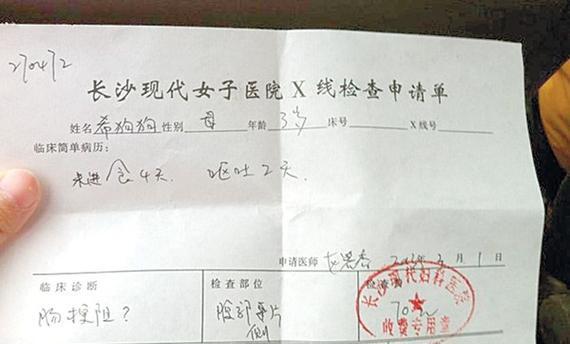 270472
长沙现代女子医院 X 线检查申请单
姓名 希狗狗 性别 母 年龄 3岁 床号 X线号
临床简单病历：
未进食4天. 呕吐2天.
申请医师 月 1 日
临床诊断 检查部位 检查费
肠梗阻？ 腹部平片
侧
70元
长沙现代妇科医院
收费专用章